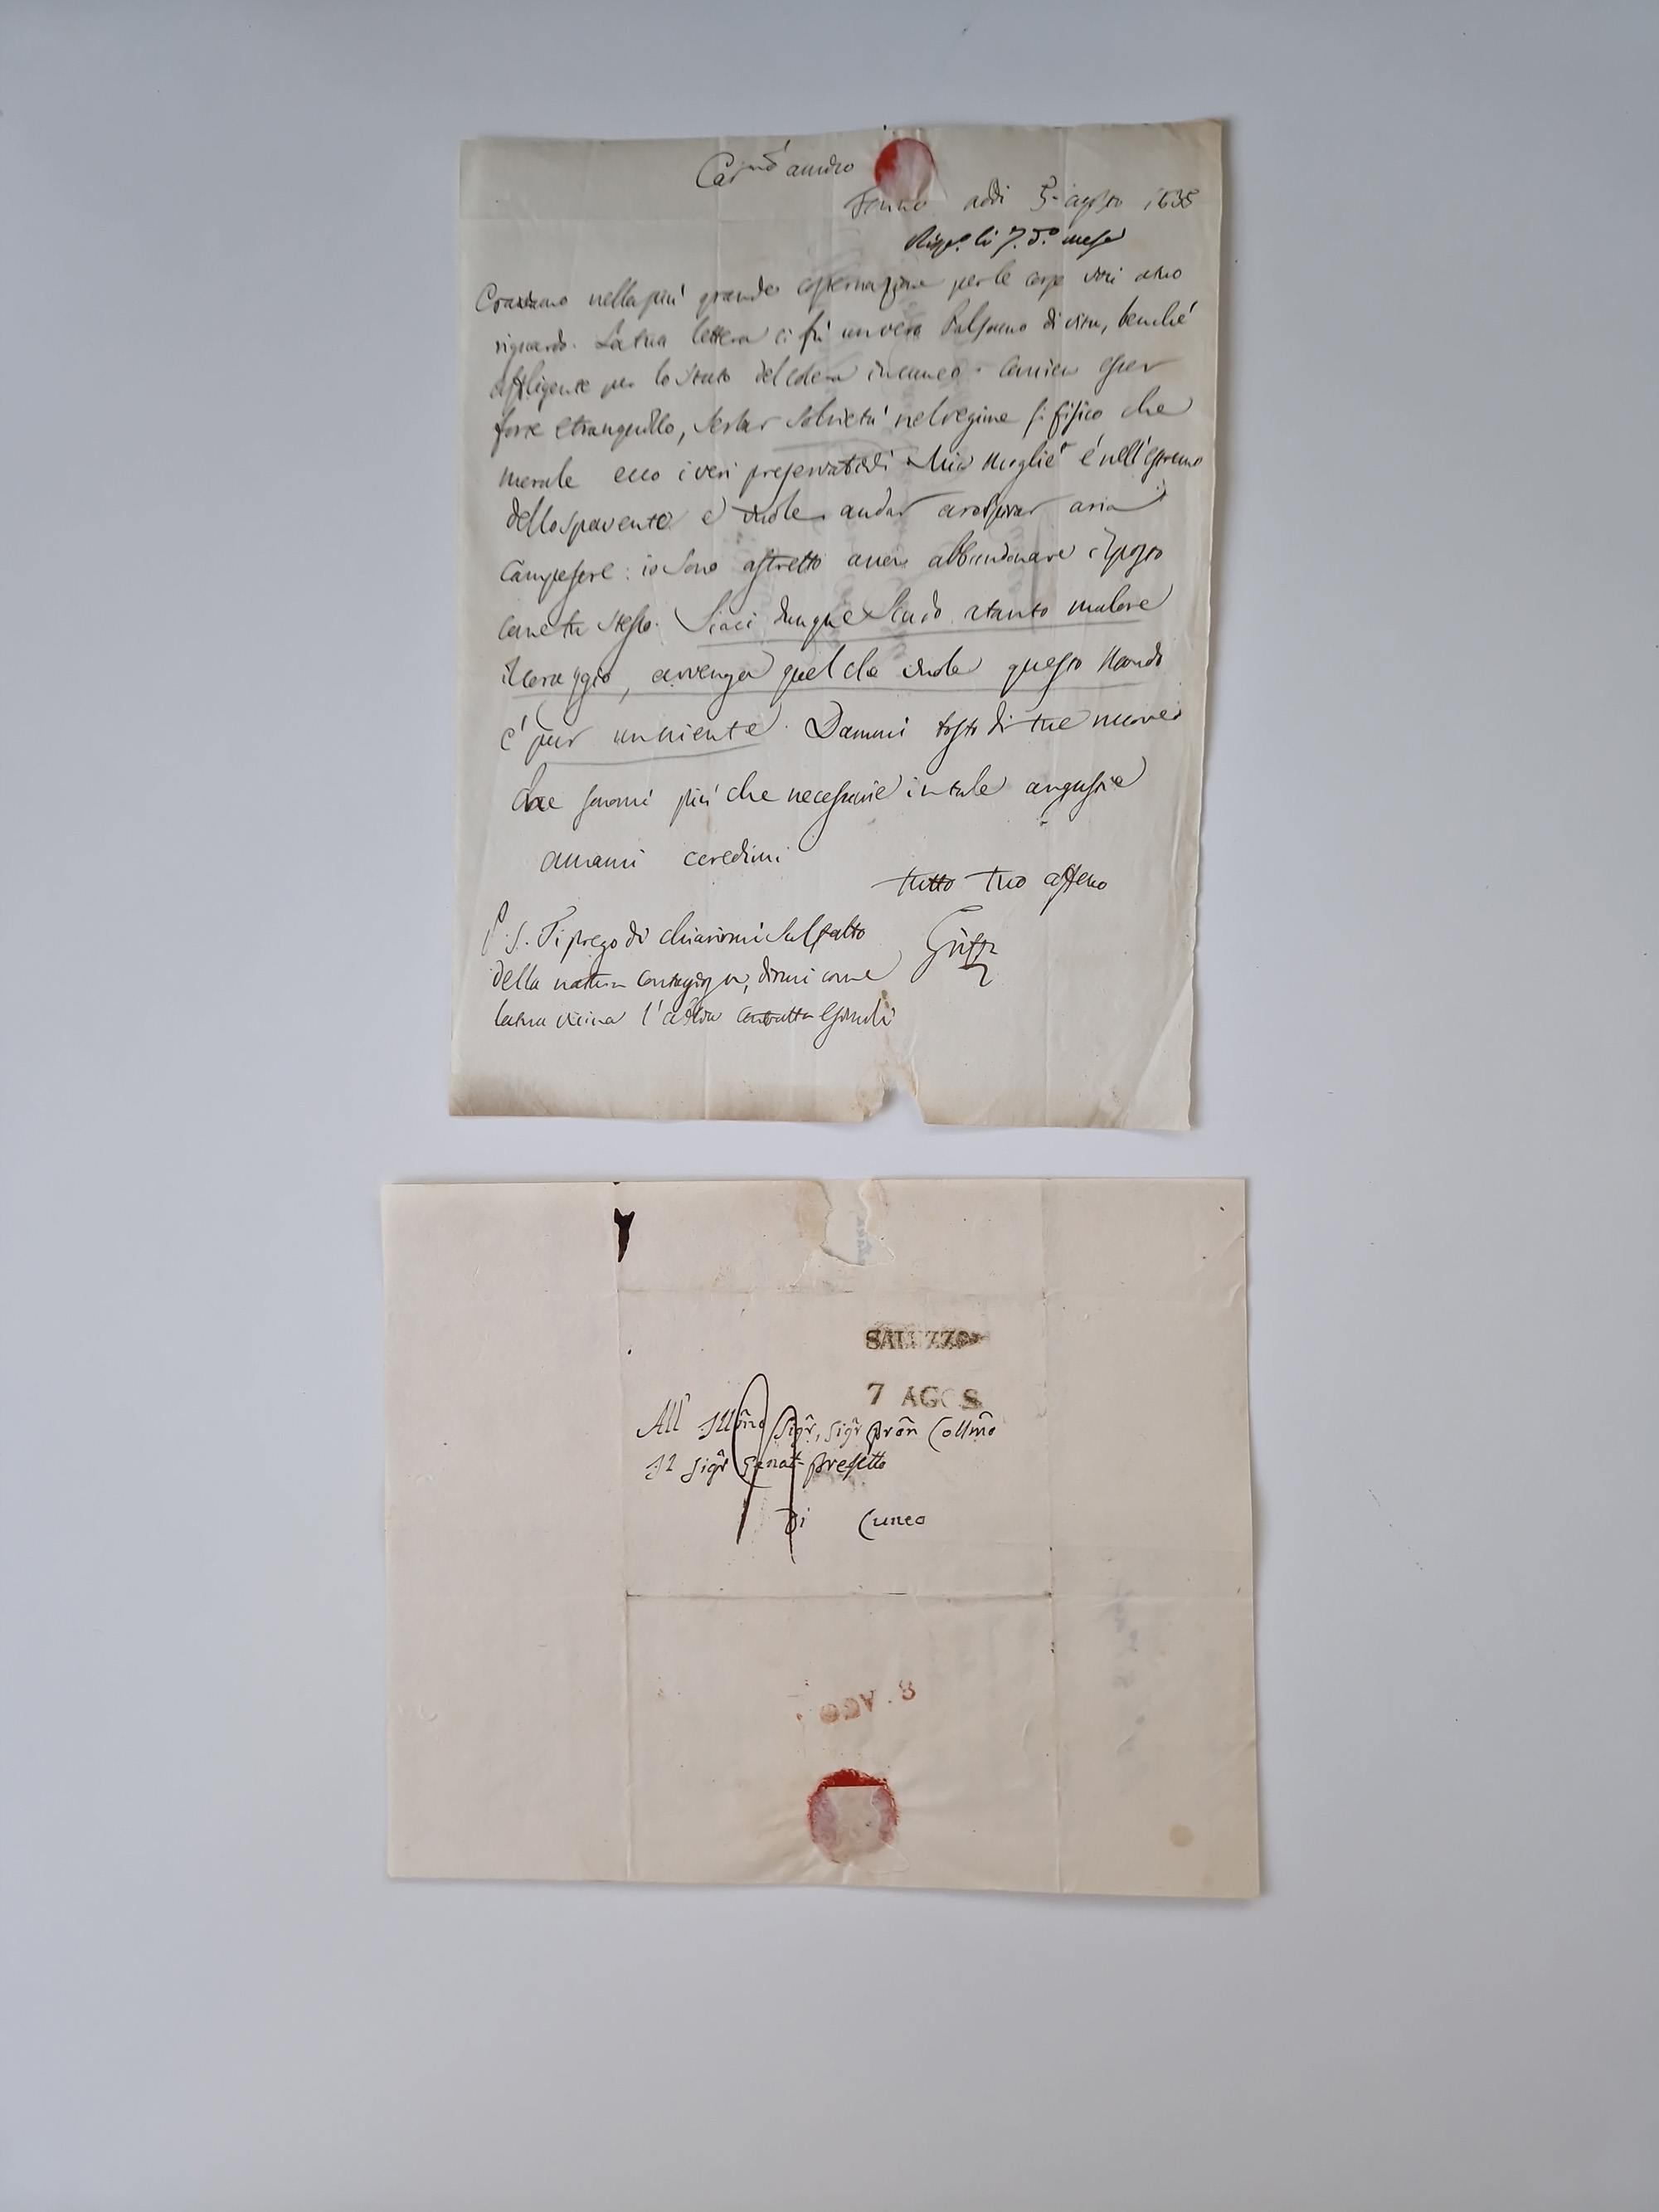 Car.mo amico
addi 5 agosto 1835
Risp.o li 7. d.o mese
Eravamo nella più grande costernazione per le corse voci a tuo
riguardo. La tua lettera ci fù un vero Balsamo di vita, benché
affligente per lo stato del colera in Cuneo. Amico esser
forte e tranquillo, serbar sobrietà nel regime sì fisico che
morale ecco i veri preservativi. Mia Moglie è nell'estremo
dello spavento e vuole andar a respirar aria
Campestre: io sono astretto a non abbandonare il posto
come tu stesso. Siaci dunque scudo a tanto malore
il coraggio, avvenga quel che vuole questo Mondo
è pur un niente. Dammi tosto di tue nuove
che sonomi più che necessarie in tale angustie
amami credimi
tutto tuo affeno
P.S. Ti prego di chiarirmi sul fatto
della natura contagiosa, dirmi come
la tua vicina l'abbia contratta
SALUZZO
7 AGOS
All' Illmo Sigr, Sigr Pron Collmo
Il Sigr Senat Prefetto
Di Cuneo
8 . AGO